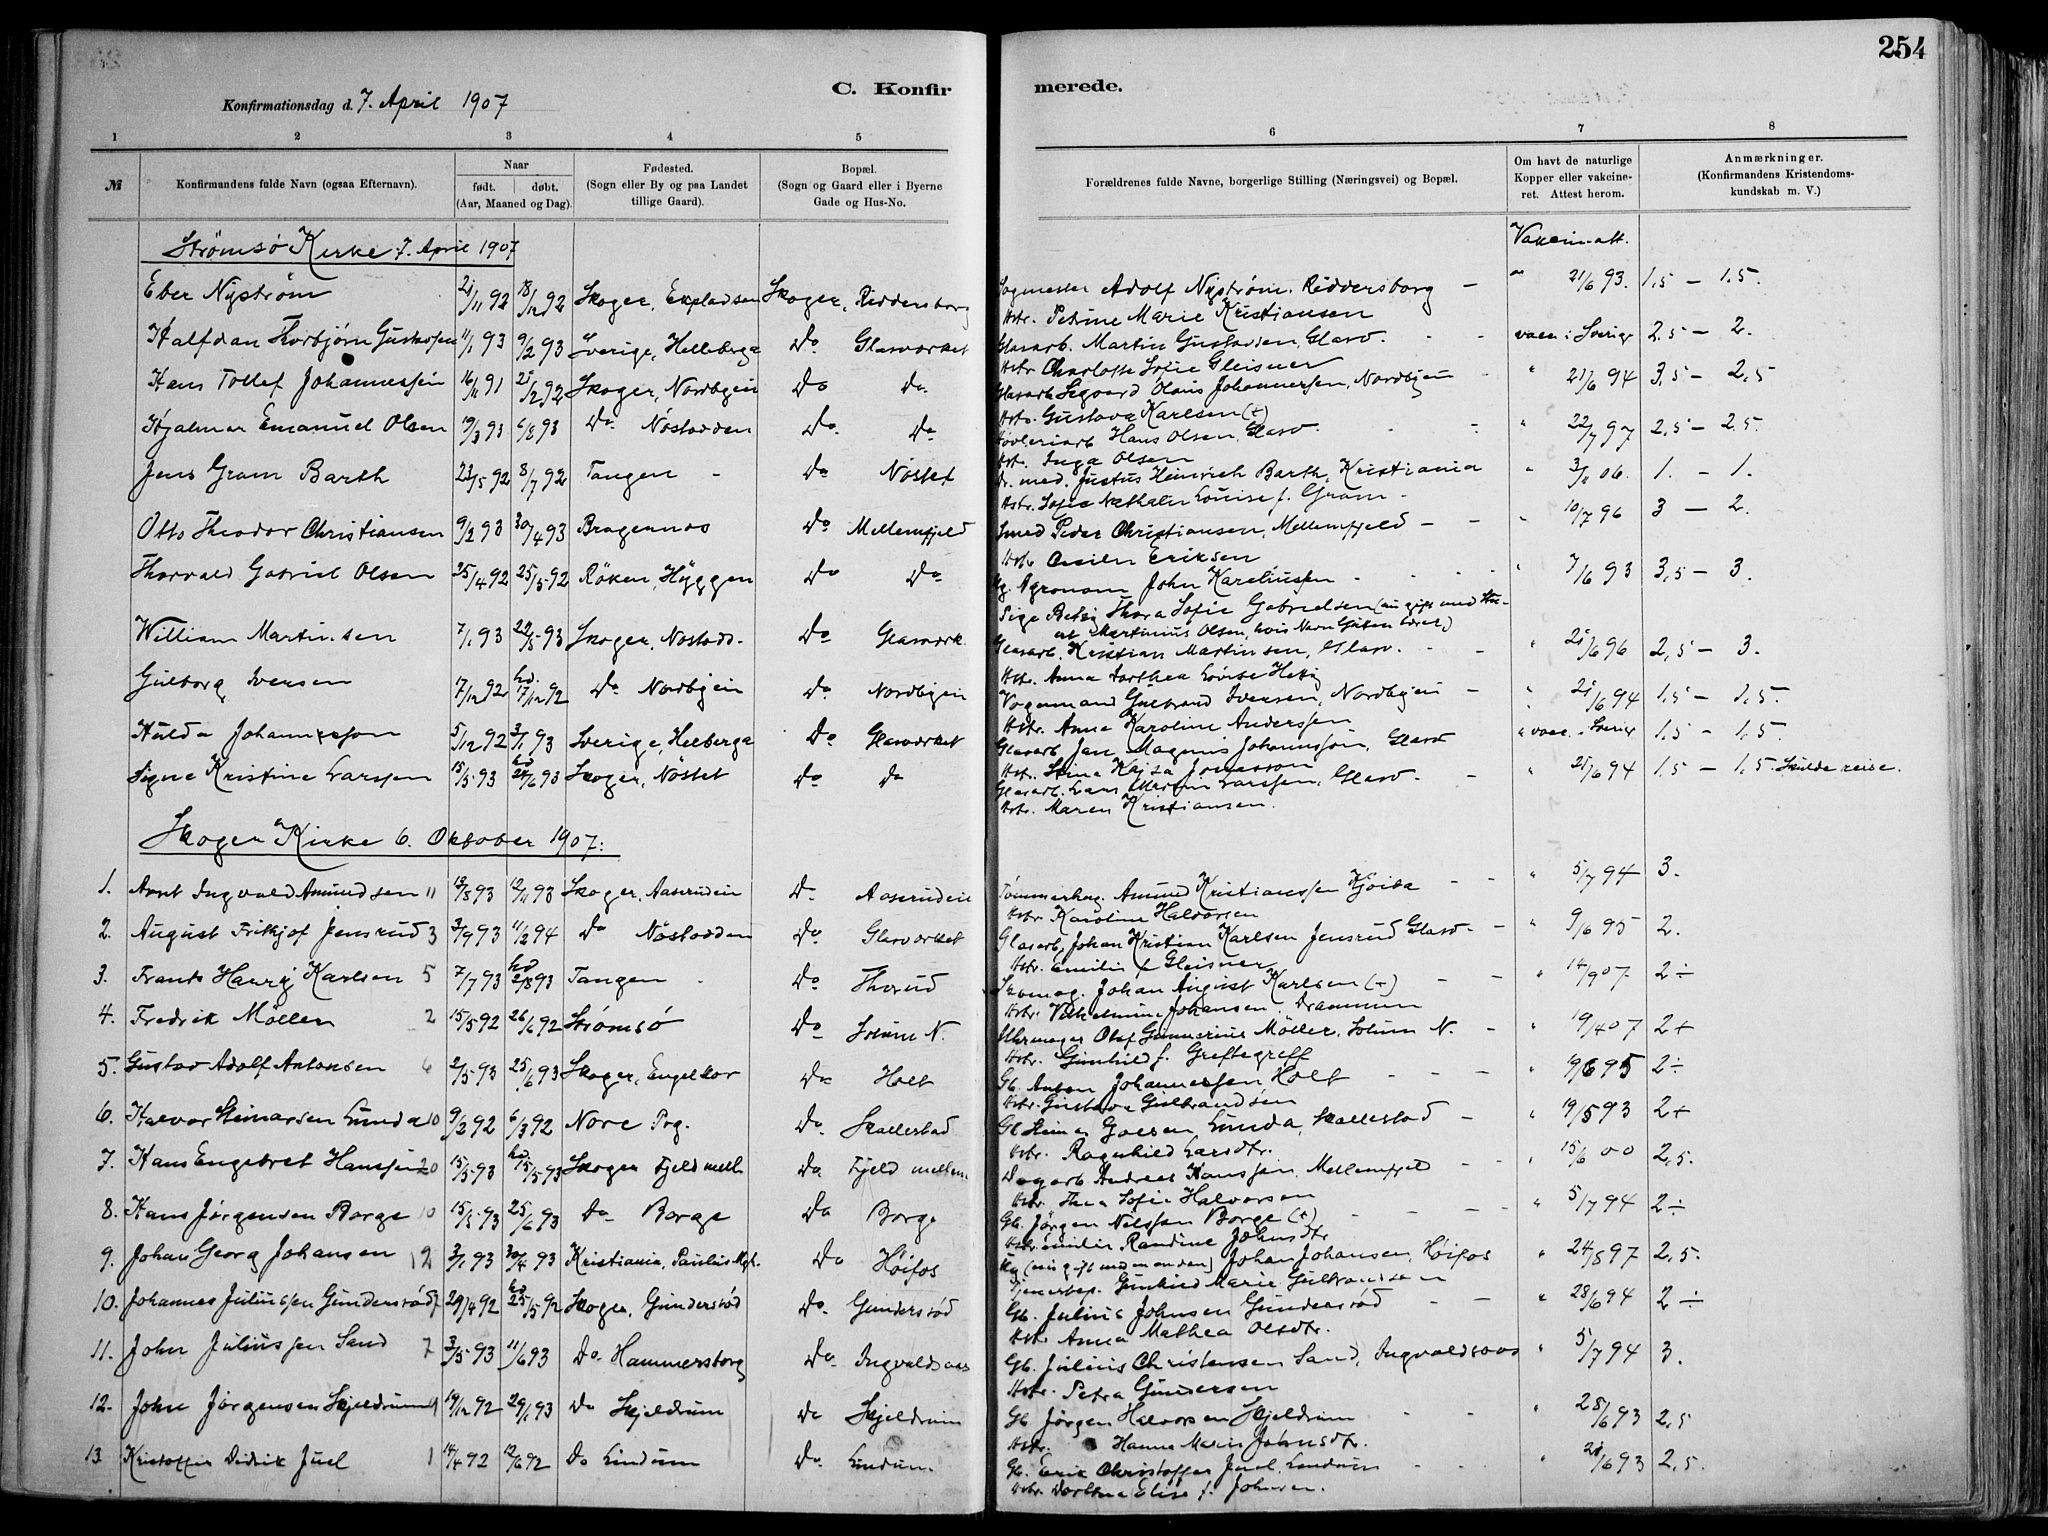 254
C. Konfirmerede.
Konfirmationsdag d. 7. April 1907
1 2 3 4 5 6 7 8
№ Konfirmandens fulde Navn (ogsaa Efternavn).
Naar født. døbt. (Aar, Maaned og Dag).
Fødested. (Sogn eller By og paa Landet tillige Gaard).
Bopæl. (Sogn og Gaard eller i Byerne Gade og Hus-No.
Forældrenes fulde Navne, borgerlige Stilling (Næringsvei) og Bopæl.
Om havt de naturlige Kopper eller vakcineret. Attest herom.
Anmærkninger. (Konfirmandens Kristendomskundskab m. V.)
Strømsø Kirke 7. April 1907
Vakcin-att.
Eber Nystrøm 21/11 92 18/12 92 Skoger, Skoger, Riddersborg Sagmester Adolf Nystrøm, Riddersborg " 21/6 93. 1,5 — 1.5.
Hstr. Petrine Marie Kristiansen
Halfdan Thorbjørn Gustafsen 11/1 93 9/2 93 Sverige, Helleberga Do Glasværket Glasarb. Martin Gustavsen, Glasv. vacc. i Sverige 2.5 — 2.
Hstr Charlotte Sofie Gleisner
Hans Tollef Johannessen 16/11 91 21/2 92 Skoger, Nordbyein Do Do Glasarb Segvard Olaus Johannessen, Nordbyein " 21/6 94 3,5 — 2,5
Hstr. Gustava Karlsen (+)
Hjalmar Emanuel Olsen 19/3 93 6/8 93 Do Nöstodden Do. Do Høvleriarb Hans Olsen, Glasv. " 22/7 97 2,5 — 2.5.
Hst. Inga Olsen
Jens Gram Barth 23/5 92 8/7 92 Tangen - Do Nöstet Dr. med. Justus Heinrich Barth, Kristiania " 3/11 06. 1. - 1.
Hstr. Sofie Nathalie Louise f. Gram -
Otto Theodor Christiansen 9/2 93 30/4 93 Bragernes Do Mellemfjeld Smed Peder Christiansen, Mellemfjeld " 10/7 96 3 — 2.
Hstr Cecilie Eriksen
Thorvald Gabriel Olsen 25/4 92 25/5 92 Røken, Hyggen Do Do Ug. Agronom John Kareliussen " 7/6 93 3,5 — 3.
Pige Betsy Thora Sofie Gabrielsen (nu gift med
Martinius Olsen, hvis Navn Gutten bærer)
William Martinsen 7/1 93 22/5 93 Skoger, Nöstodd. Do Glasværk. Glasarb. Kristian Martinsen, Glasv. " 21/6 96 2,5 — 3.
Hstr. Anna Dorthea Lovise
Gulborg Iversen 7/12 92 hd. 17/12 92 Do Nordbyein Do. Nordbyein Vognmand Gulbrand Iversen, Nordbyein " 21/6 94 1,5 — 1,5.
Hstr. Anna Karoline Anderssen
Hulda Johannesson 5/12 92 3/1 93 Sverige, Helberga Do Glasværket Glasarb Jan Magnus Johannsson, Glasv " vacc. i Sverige 1,5 - 1,5.
Hst. Kajsa Jonasson
Signe Kristine Larssen 15/5 93 hd 24/6 93 Skoger, Nöstet Do do Glasarb. Lars Martin Larssen, Glasv. " 21/6 94 1,5 — 1,5. Skulde reise.
Hstr. Maren Kristiansen.
Skoger Kirke 6. Oktober 1907:
1. Arnt Ingvald Amundsen 11 13/8 93 12/11 93 Skoger, Aaserudein Do. Aaserudein Tømmerhug. Amund Kristianssen " 5/7 94 3.
Hstr Karoline Halvorsen
2. August Fritjof Jensrud 3 3/9 93 11/2 94 Do Nöstodden Do Glasværket Glasarb. Johan Kristian Karlsen Jensrud Glasv " 9/6 95 2.
Hstr. Emilie f Gleisner
3. Frants Harry Karlsen 5 7/7 93 hd 2/8 93 Tangen - Do Thorud Skomag. Johan August Karlsen (+) " 14/9 07 2÷
Hstr. Vilhelmine Johansen. Drammen
4. Fredrik Möller 2 15/5 92 26/6 92 Strømsö Do Solum N. Uhrmager Olaf Gunnerius Möller, Solum N. " 19/4 07 2+
Hstr. Gunhild f. Greftegreff
5. Gustav Adolf Antonsen 6 2/5 93 25/6 93 Skoger, Engelkor Do Holt Gb. Anton Johannessen, Holt " 19/6 95 2÷
Hstr. Gustava Gulbrandsen
6. Halvor Steinarsen Lunda 10 9/2 92 6/3 92 Nore Prg. Do. Skallestad Gb Steinar Goesen Lunda, Skallestad " 19/5 93 2+
Hstr. Ragnhild Larsdtr.
7. Hans Engebret Hanssen 20 15/5 93 hd 15/5 93 Skoger Fjeld mell. Do. Fjeld mellem Dagarb Andreas Hanssen, Mellemfjeld " 15/6 00 2,5.
Hstr. Thea Sofie Halvorsen
8. Hans Jørgensen Borge 10 15/5 93 25/6 93 Do Borge Do Borge Gb. Jörgen Nilssen Borge (+) " 5/7 94 2÷
Hstr Emilie Randine Johnsdtr
9. Johan Georg Johansen 12 3/1 93 30/4 93 Kristiania, Paulus Mgh. Do Höifos Ug (nu gift med en anden) Johan Johansen, Höifos " 24/8 97 2,5.
Tjenerpige. Gunhild Marie Gulbrandsen
10. Johannes Juliussen Gunderstöd 7 29/4 92 hd 25/5 92 Skoger, Gunderstöd Do. Gunderstöd Gb. Julius Johnsen Gunderstöd " 28/6 94 2÷
Hstr Anna Mathea Olsdtr.
11. John Juliussen Sand 7 3/5 93 11/6 93 Do. Hammersborg Do. Ingvaldsaas Gb. Julius Christensen Sand, Ingvaldsaas " 5/7 94 3.
Hstr. Petra Gundersen
12. John Jørgensen Skjeldrum 9 19/12 92 29/1 93 Do Skjeldrum Do Skjeldrum Gb Jørgen Halvorsen Skjeldrum " 28/6 93 2,5
Hstr. Hanna Marie Johnsdtr.
13 Kristoffer Didrik Juel 1 14/4 92 12/6 92 Do Lindum Do. Lindum Gb. Erik Christoffer Juel, Lindum " 21/6 93 2,5.
Hstr. Dorthea Elise f. Johnsen.